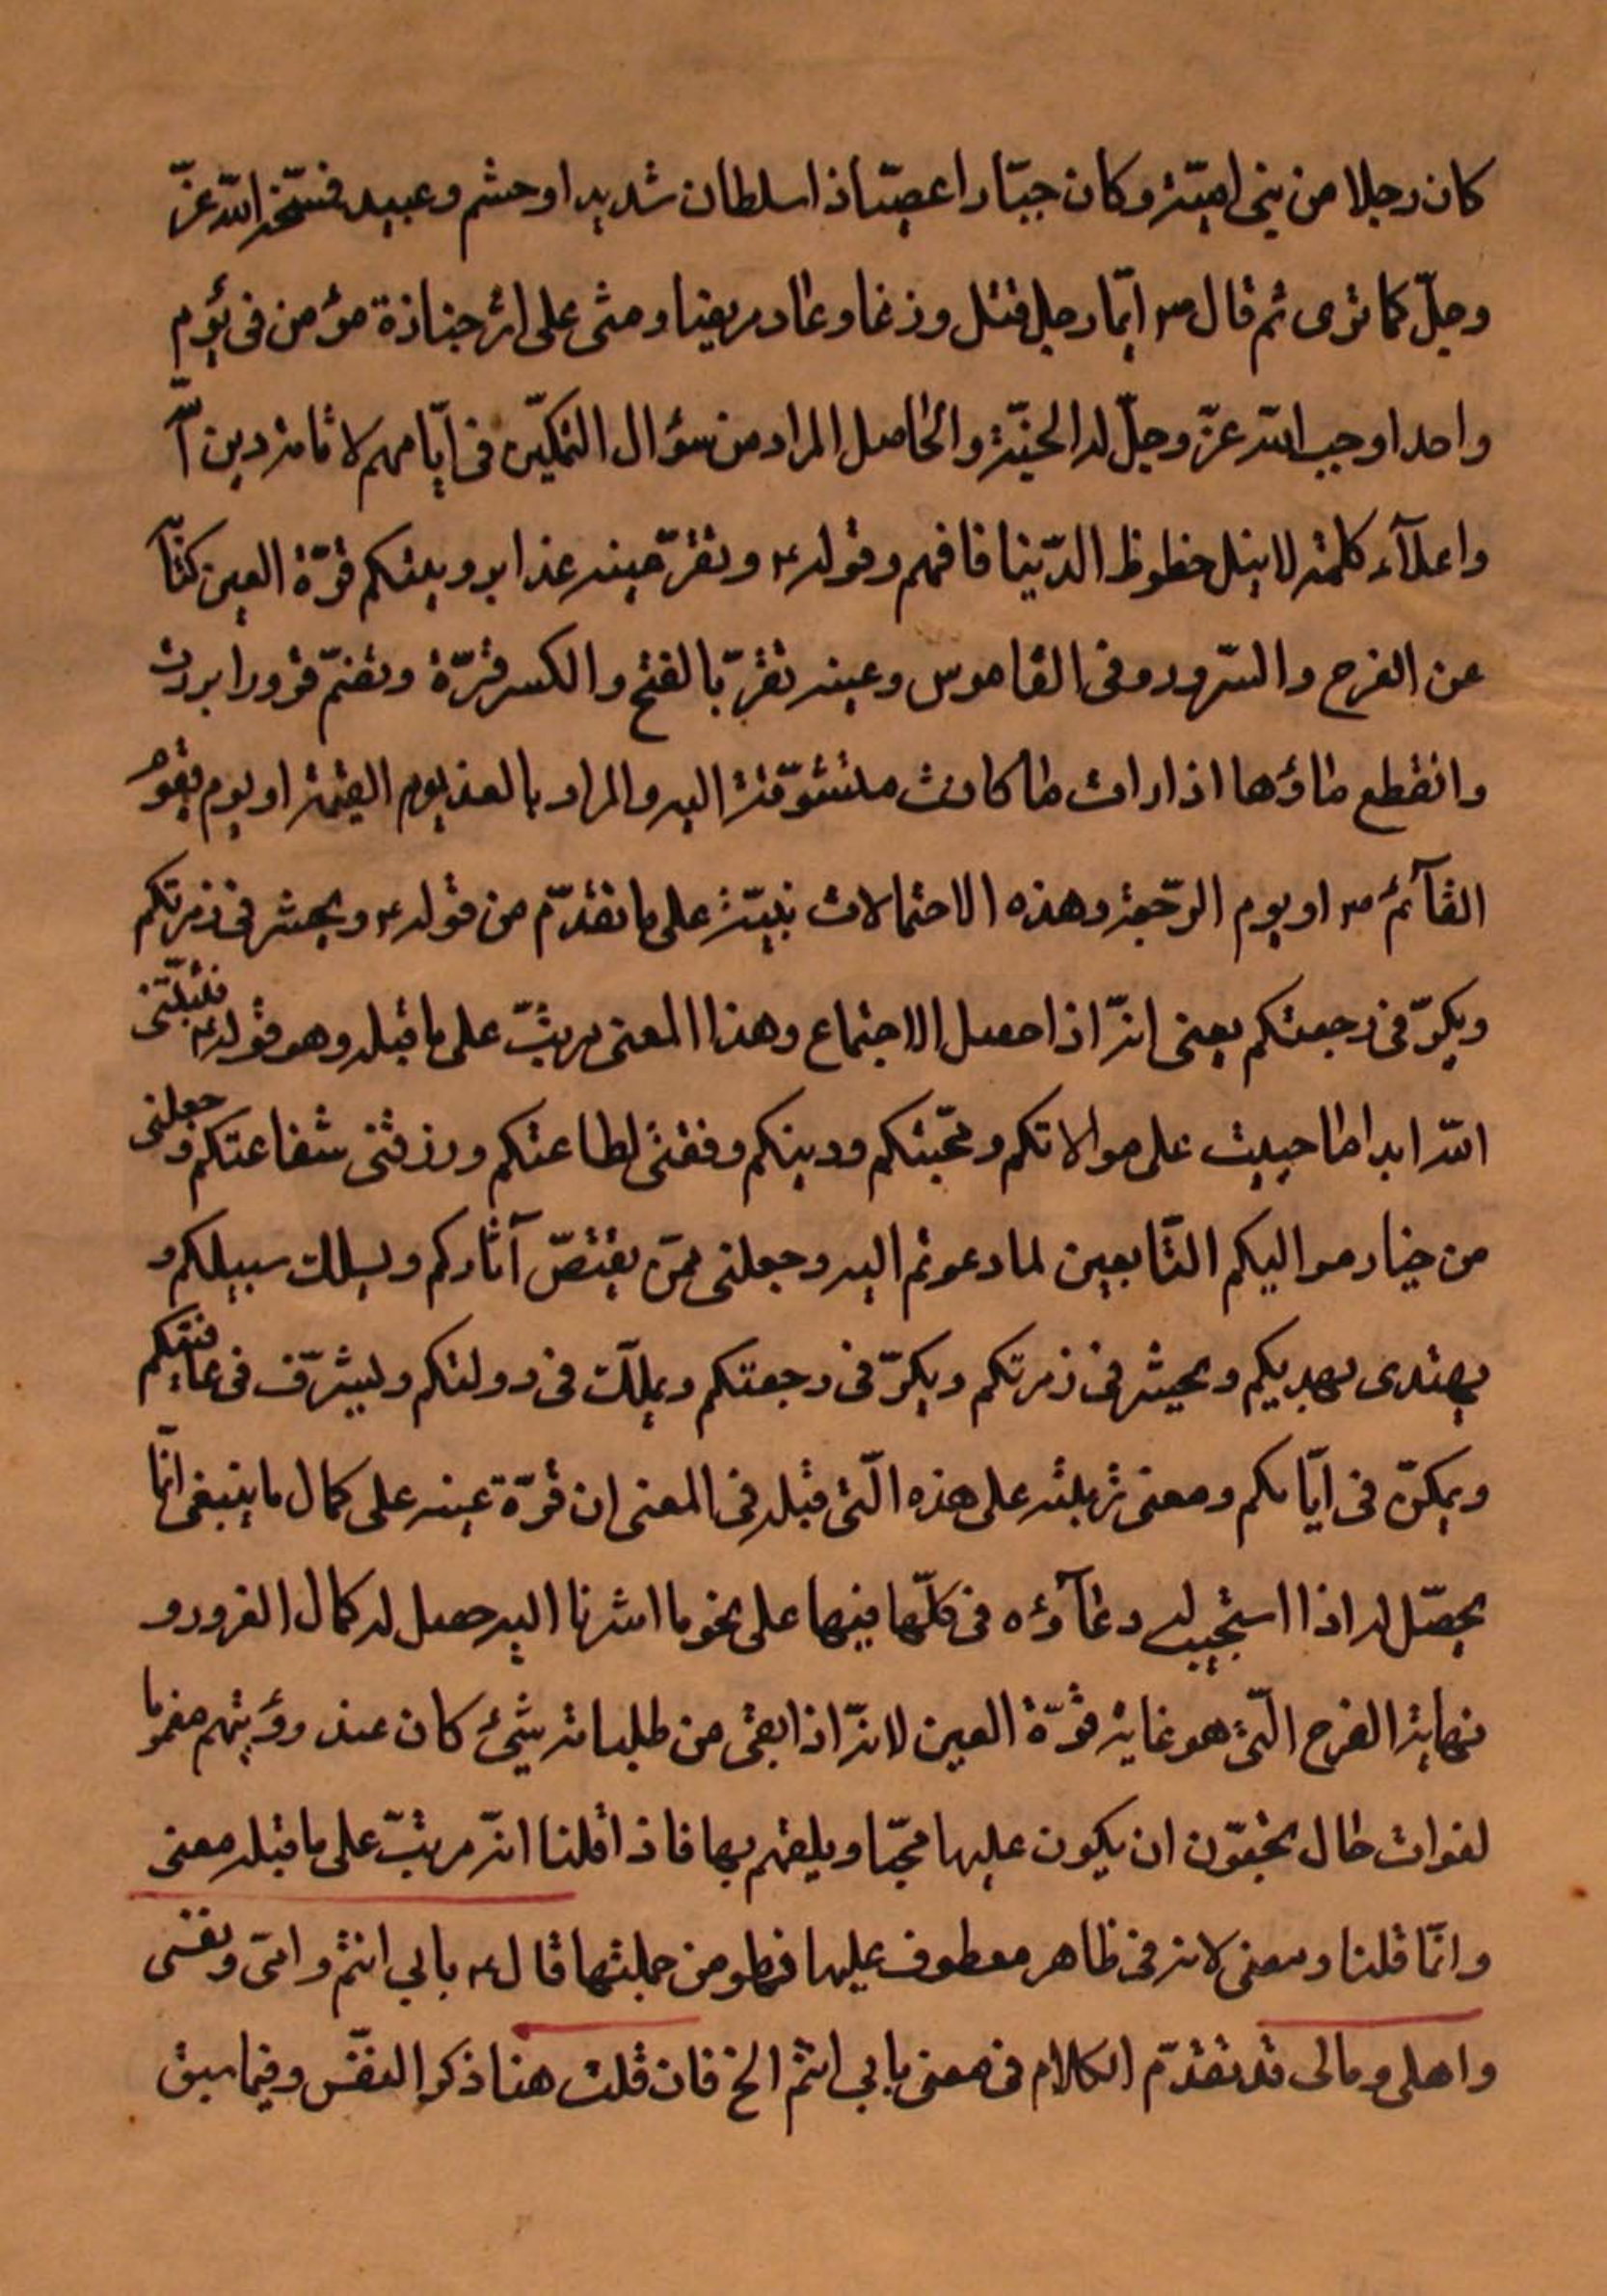 كان رجلا من بنى اميّة وكان جبّارا عصيّا ذا سلطان شديد او حشم وعبيد فسخّر الله عزّ
وجلّ كما ترى ثم قال ۳ ايّما رجل قتل وزغا وعاد مريضا ومشى على اثر جنازة مؤمن فى يوم
واحد اوجب الله عزّ وجلّ له الجنّة والحاصل المراد من سؤال التمكين فى ايّامهم لاقامة دين الله
واعلآء كلمته لا نيل حظوظ الدّنيا فافهم وقوله ۴ وتقرّ عينه غدا برؤيتكم قرّة العين كناية
عن الفرح والسّرور وفى القاموس وعينه تقرّ بالفتح والكسر قرّة وتضمّ قرورا بردت
وانقطع ماؤها اذا رات ما كانت متشوّقة اليه والمراد بالغد يوم القيمة او يوم يقوم
القآئم ۳ او يوم الرّجعة وهذه الاحتمالات نبيّنه على ما تقدّم من قوله ۴ ويحشر فى زمرتكم
ويكرّ فى رجعتكم يعنى انّه اذا حصل الاجتماع وهذا المعنى مرتّب على ما قبله وهو قوله ۴ فثبّتنى
الله ابدا ما حييت على موالاتكم ومحبّتكم ودينكم ووفقنى لطاعتكم ورزقنى شفاعتكم وجعلنى
من خيار مواليكم التّابعين لما دعوتم اليه وجعلنى ممّن يقتصّ آثاركم ويسلك سبيلكم و
يهتدى بهديكم ويحشر فى زمرتكم ويكرّ فى رجعتكم ويملّك فى دولتكم ويشرّف فى عافيتكم
ويمكّن فى ايّامكم ومعنى ترتبه على هذه الّتى قبله فى المعنى ان قرّة عينه على كمال ما ينبغى انّما
يحصّل له اذا استجيب له دعآؤه فى كلّها فيها على نحو ما اشرنا اليه حصل له كمال السرور و
نهاية الفرح الّتى هو غاية قرّة العين لانّه اذا بقى من طلباته شىء كان عند رؤيتهم مغموما
لفوات حال يحبّون ان يكون عليها محبّا ويلقهم بها فاذا قلنا انّه مرتّب على ما قبله معنى
وانّا قلنا ومعنى لانه فى ظاهر معطوف عليها فهو من جملتها قال ۴ بابى انتم وامّى ونفسى
واهلى ومالى قد تقدّم الكلام فى معنى بابى انتم الخ فان قلت هنا ذكر النفس وفيما سبق